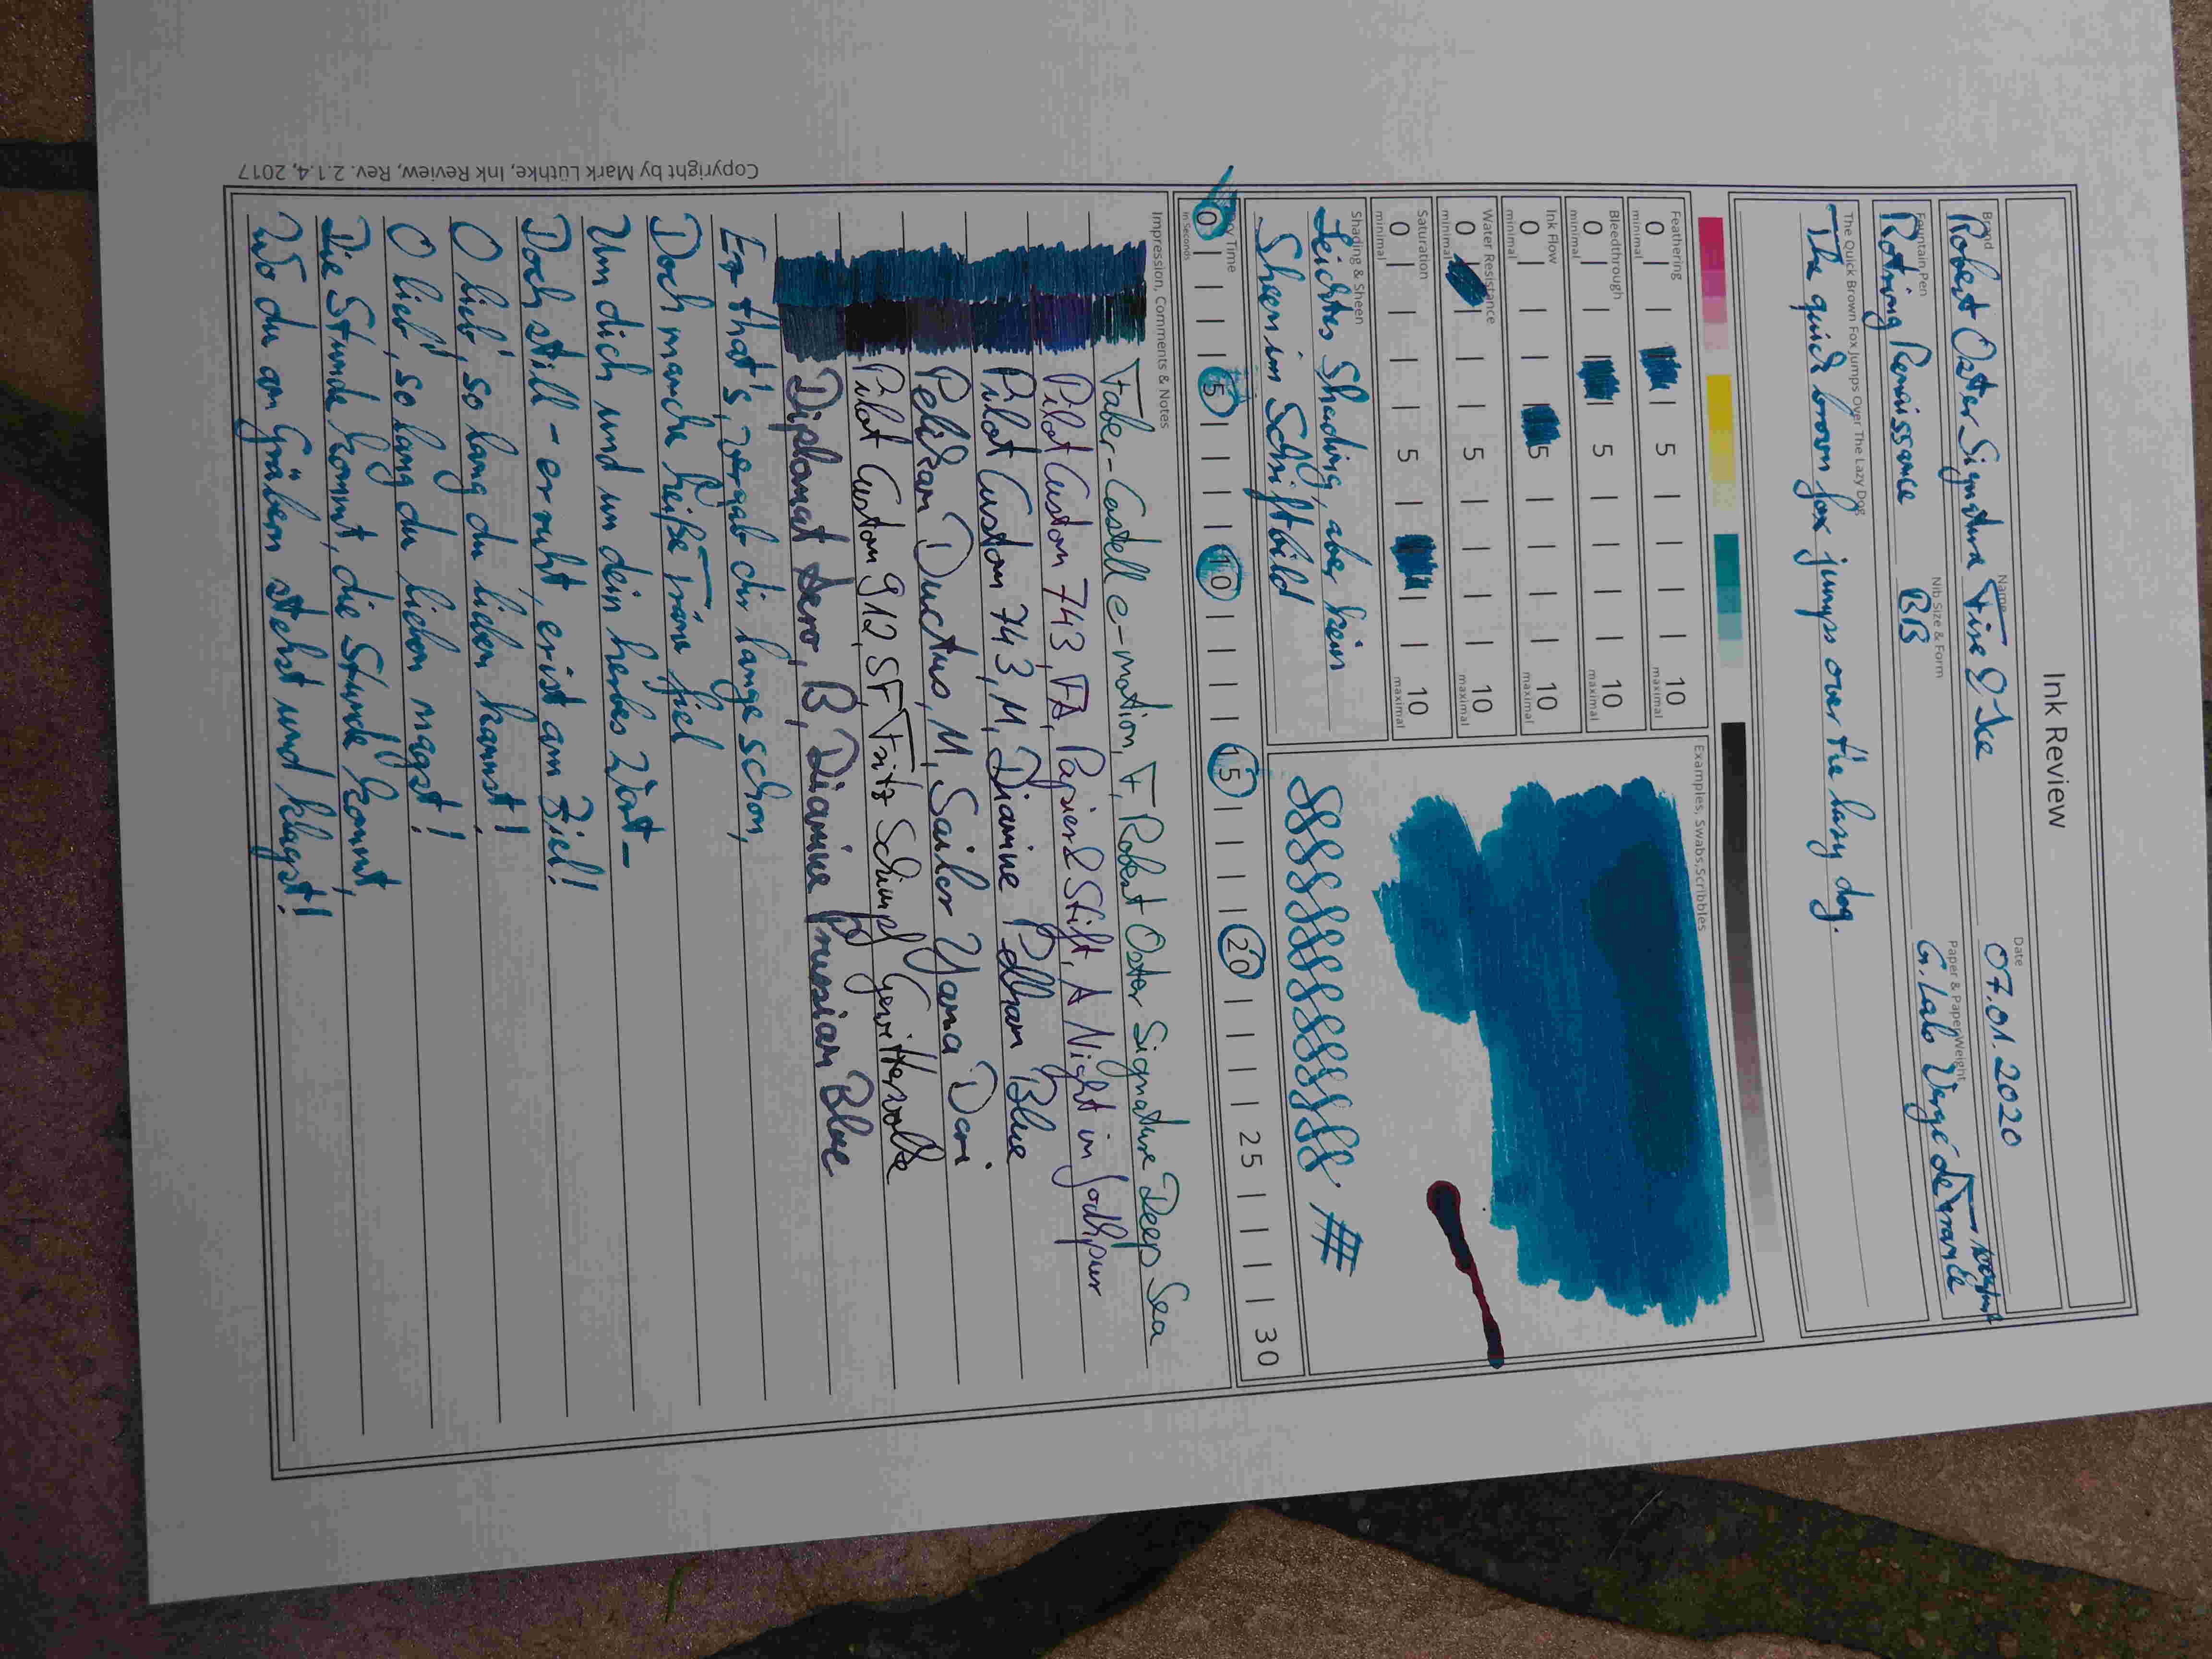 Ink Review
Brand
Robert Oster Signature
Name
Fire & Ice
Date
07.01.2020
Fountain Pen
Rotring Renaissance
Nib Size & Form
BB
Paper & Paper Weight
G. Lalo Vergé de France
The Quick Brown Fox Jumps Over The Lazy Dog
The quick brown fox jumps over the lazy dog.
Feathering
0 5 10
minimal maximal
Bleedthrough
0 5 10
minimal maximal
Ink Flow
0 5 10
minimal maximal
Water Resistance
0 5 10
minimal maximal
Saturation
0 5 10
minimal maximal
Shading & Sheen
Leichtes Shading, aber kein
Sheen im Schriftbild
Examples, Swabs, Scribbles
Dry Time
0 5 10 15 20 25 30
in Seconds
Impression, Comments & Notes
Faber-Castell e-motion, F, Robert Oster Signature Deep Sea
Pilot Custom 743, FA, Papier & Stift, A Night in Jodhpur
Pilot Custom 743, M, Diamine Pelham Blue
Pelikan Ductus, M, Sailor Yama Dori
Pilot Custom 912, SF, Fritz Schimpf Gewitterwolke
Diplomat Aero, B, Diamine Prussian Blue
Er that's, vergab dir lange schon,
Doch manche heiße Träne fiel
Um dich und um dein herbes Wort –
Doch still – er ruht, er ist am Ziel!
O lieb', so lang du lieben kannst!
O lieb', so lang du lieben magst!
Die Stunde kommt, die Stunde kommt,
Wo du an Gräbern stehst und klagst!
Copyright by Mark Lüthke, Ink Review, Rev. 2.1.4, 2017